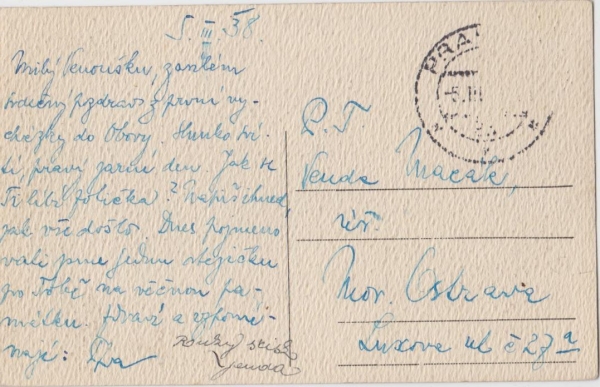 5. III. 38.
Milý Venoušku, zasílám
srdečný pozdrav z první vy-
cházky do Obory. Slunko sví-
tí, pravý jarní den. Jak se
Ti líbí? Napiš ihned,
jak vše došlo. Dnes pojmeno-
vali jsme jednu stezičku
po Tobě na věčnou pa-
mátku. Zdraví a vzpomí-
nají:
Jenda
PRA
P. T.
Venda Macák,
Mor. Ostrava
Luxova ul č 27a